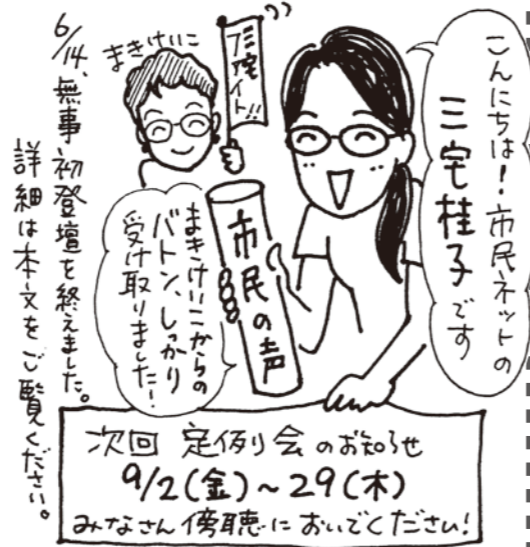 こんにちは！市民ネットの
三宅桂子です
ミヤケイト!!
まきけいこ
市民の声
まきけいこからの
バトン、しっかり
受け取りました！
6/14、無事初登壇を終えました。
詳細は本文をご覧ください。
次回 定例会のお知らせ
9/2(金)～29(木)
みなさん傍聴においでください！